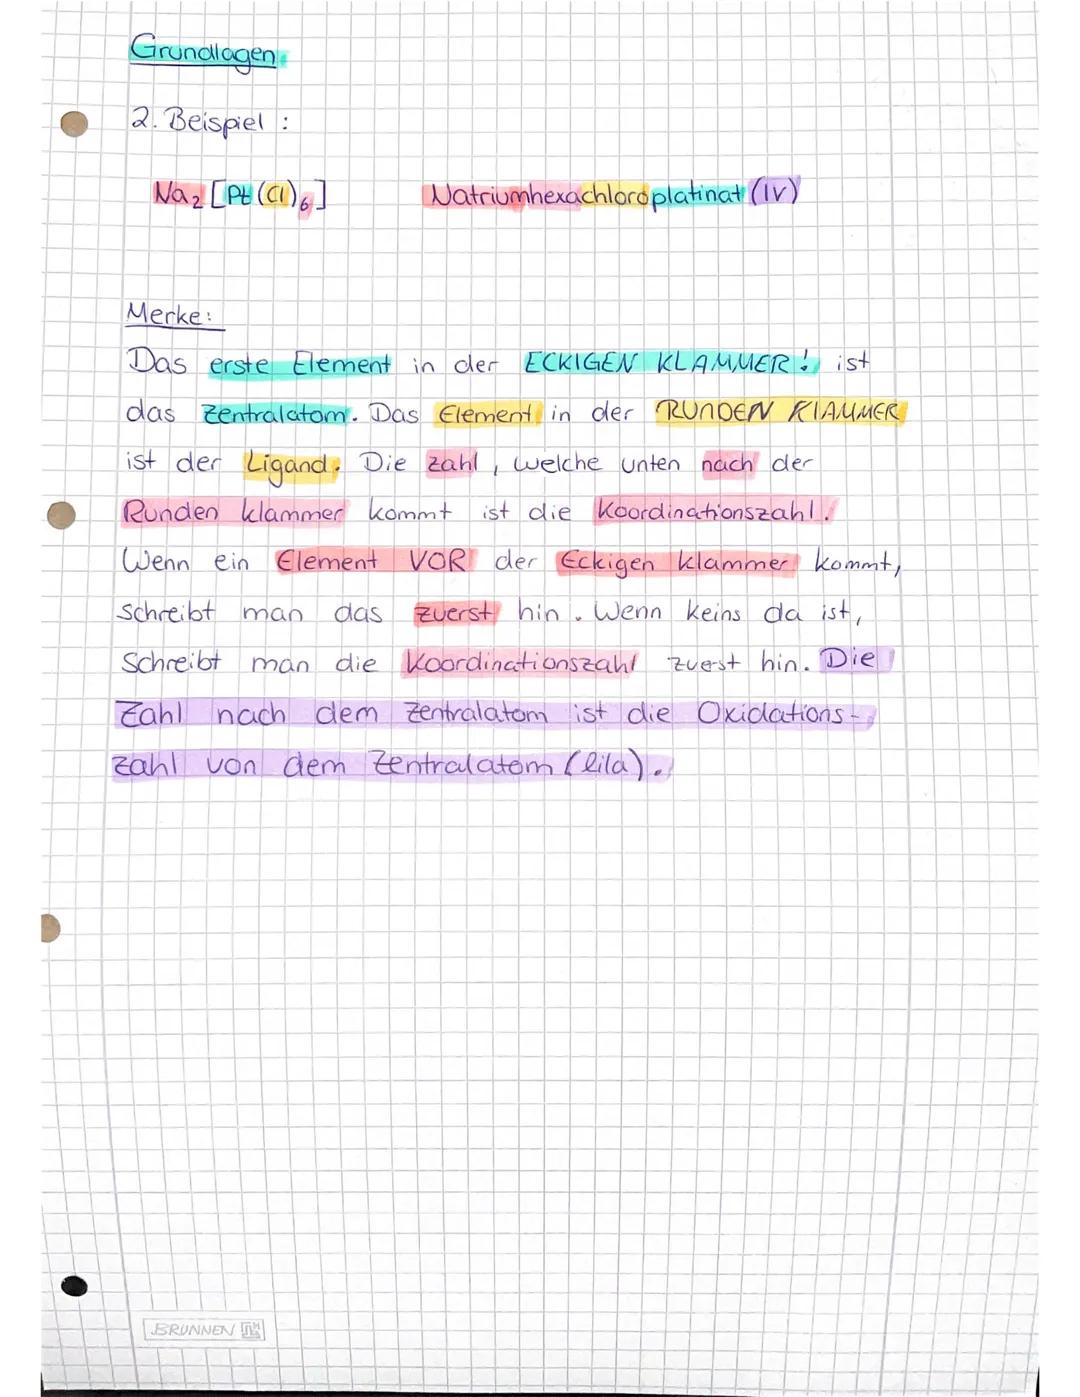 Grundlagen
2. Beispiel :
Na₂ [Pt (Cl)₆] Natriumhexachloroplatinat (IV)
Merke:
Das erste Element in der ECKIGEN KLAMMER! ist
das Zentralatom. Das Element in der RUNDEN KLAMMER
ist der Ligand. Die Zahl, welche unten nach der
Runden klammer kommt ist die Koordinationszahl.
Wenn ein Element VOR der Eckigen klammer kommt,
schreibt man das zuerst hin. Wenn keins da ist,
Schreibt man die Koordinationszahl zuerst hin. Die
Zahl nach dem Zentralatom ist die Oxidations-
zahl von dem Zentralatom (lila).
BRUNNEN